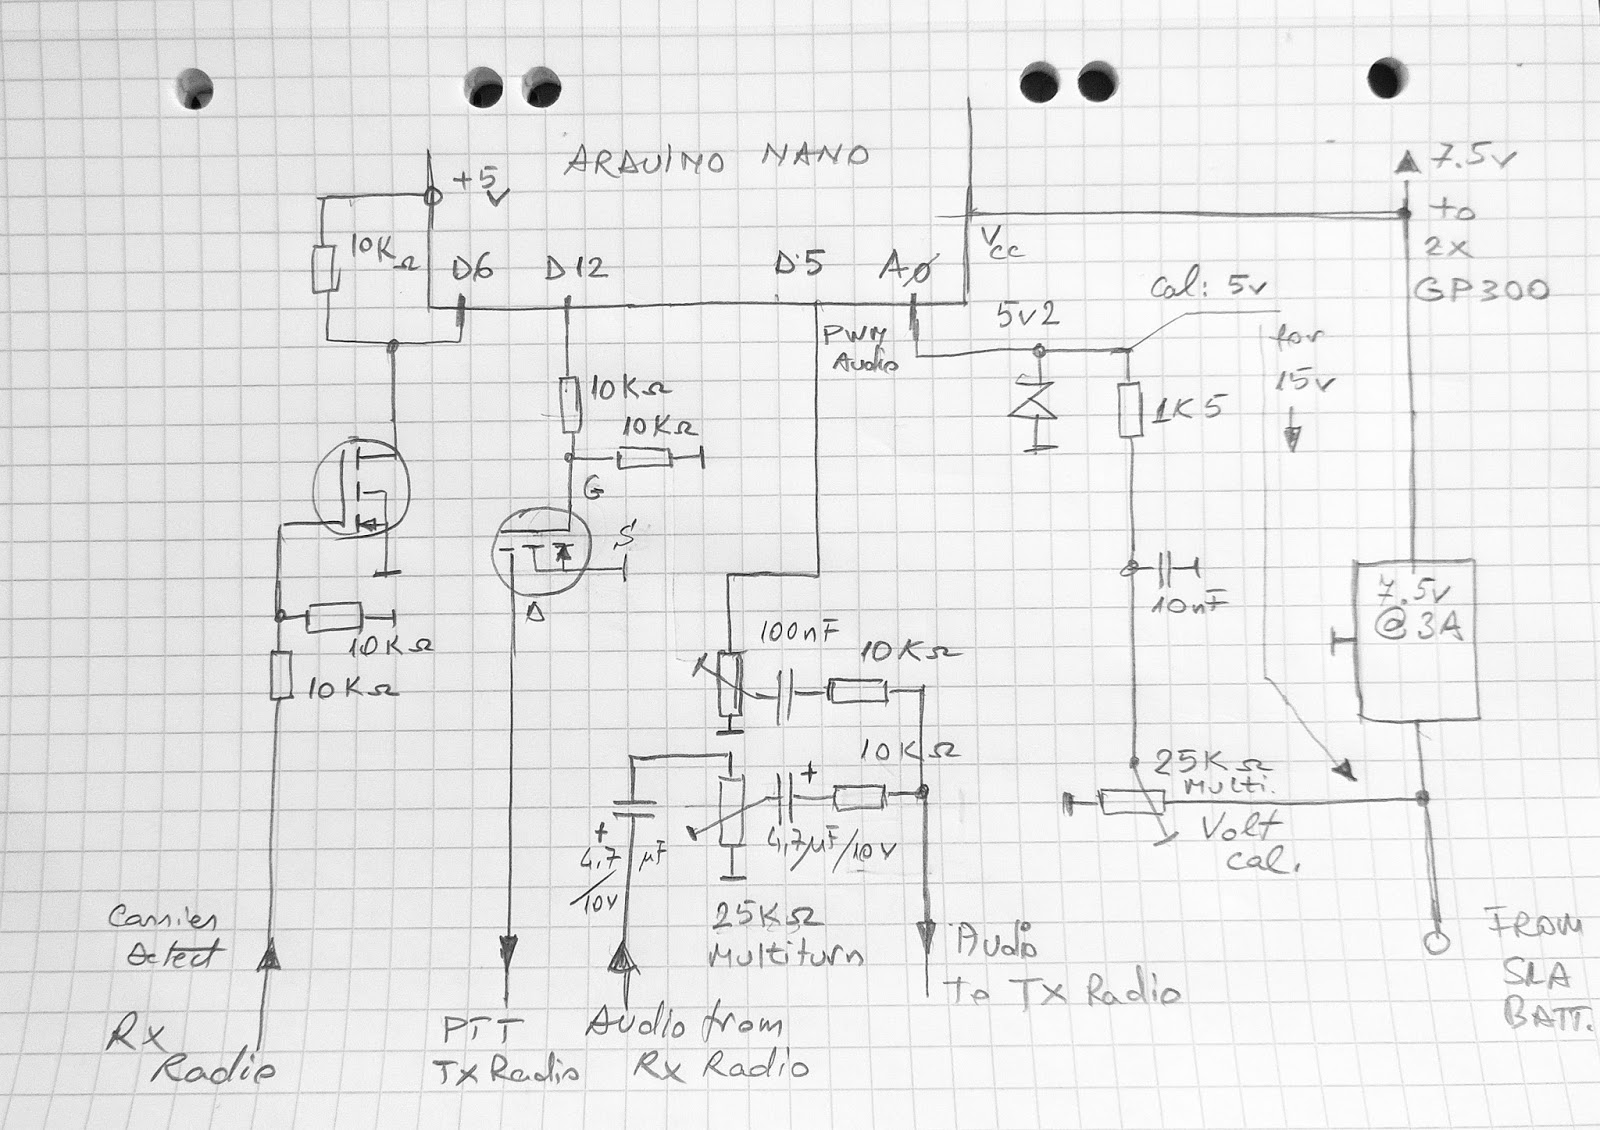 ARDUINO NANO
+5v
7.5v
to
2x
GP300
10KΩ
D6
D12
D5
A0
Vcc
Cal: 5v
for
15v
5v2
PWM
Audio
10KΩ
10KΩ
1K5
G
S
D
10nF
7.5v
@3A
10KΩ
10KΩ
100nF
10KΩ
10KΩ
25KΩ
Multi.
Volt
cal.
+
+
4,7 µF
/10v
4,7µF/10V
25KΩ
Multiturn
Carrier
Detect
Rx
Radio
PTT
TX Radio
Audio from
Rx Radio
Audio
to TX Radio
FROM
SLA
BATT.